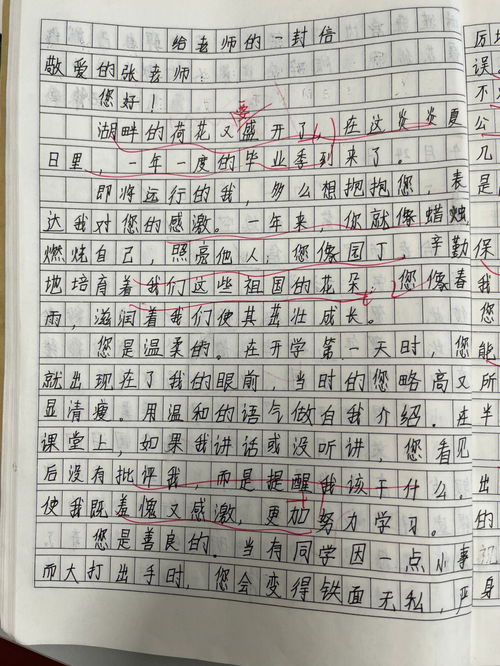 给老师的一封信
敬爱的张老师:
您好!
湖畔的荷花又盛开了,在这炎炎夏
日里,一年一度的毕业季到来了。
即将远行的我,多么想抱抱您,表
达我对您的感激。一年来,你就像蜡烛
燃烧自己,照亮他人;您像园丁,辛勤
地培育着我们这些祖国的花朵;您像春
雨,滋润着我们使其茁壮成长。
您是温柔的。在开学第一天时,您
就出现在了我的眼前,当时的您略高又
显清瘦。用温和的语气做自我介绍。在
课堂上,如果我讲话或没听讲,您看见
后没有批评我,而是提醒我该干什么。
使我既羞愧又感激,更加努力学习。
您是善良的。当有同学因一点小事
而大打出手时,您会变得铁面无私,严
厉
误。
不
公
几
是
保
我
能
所
半
出
的
身